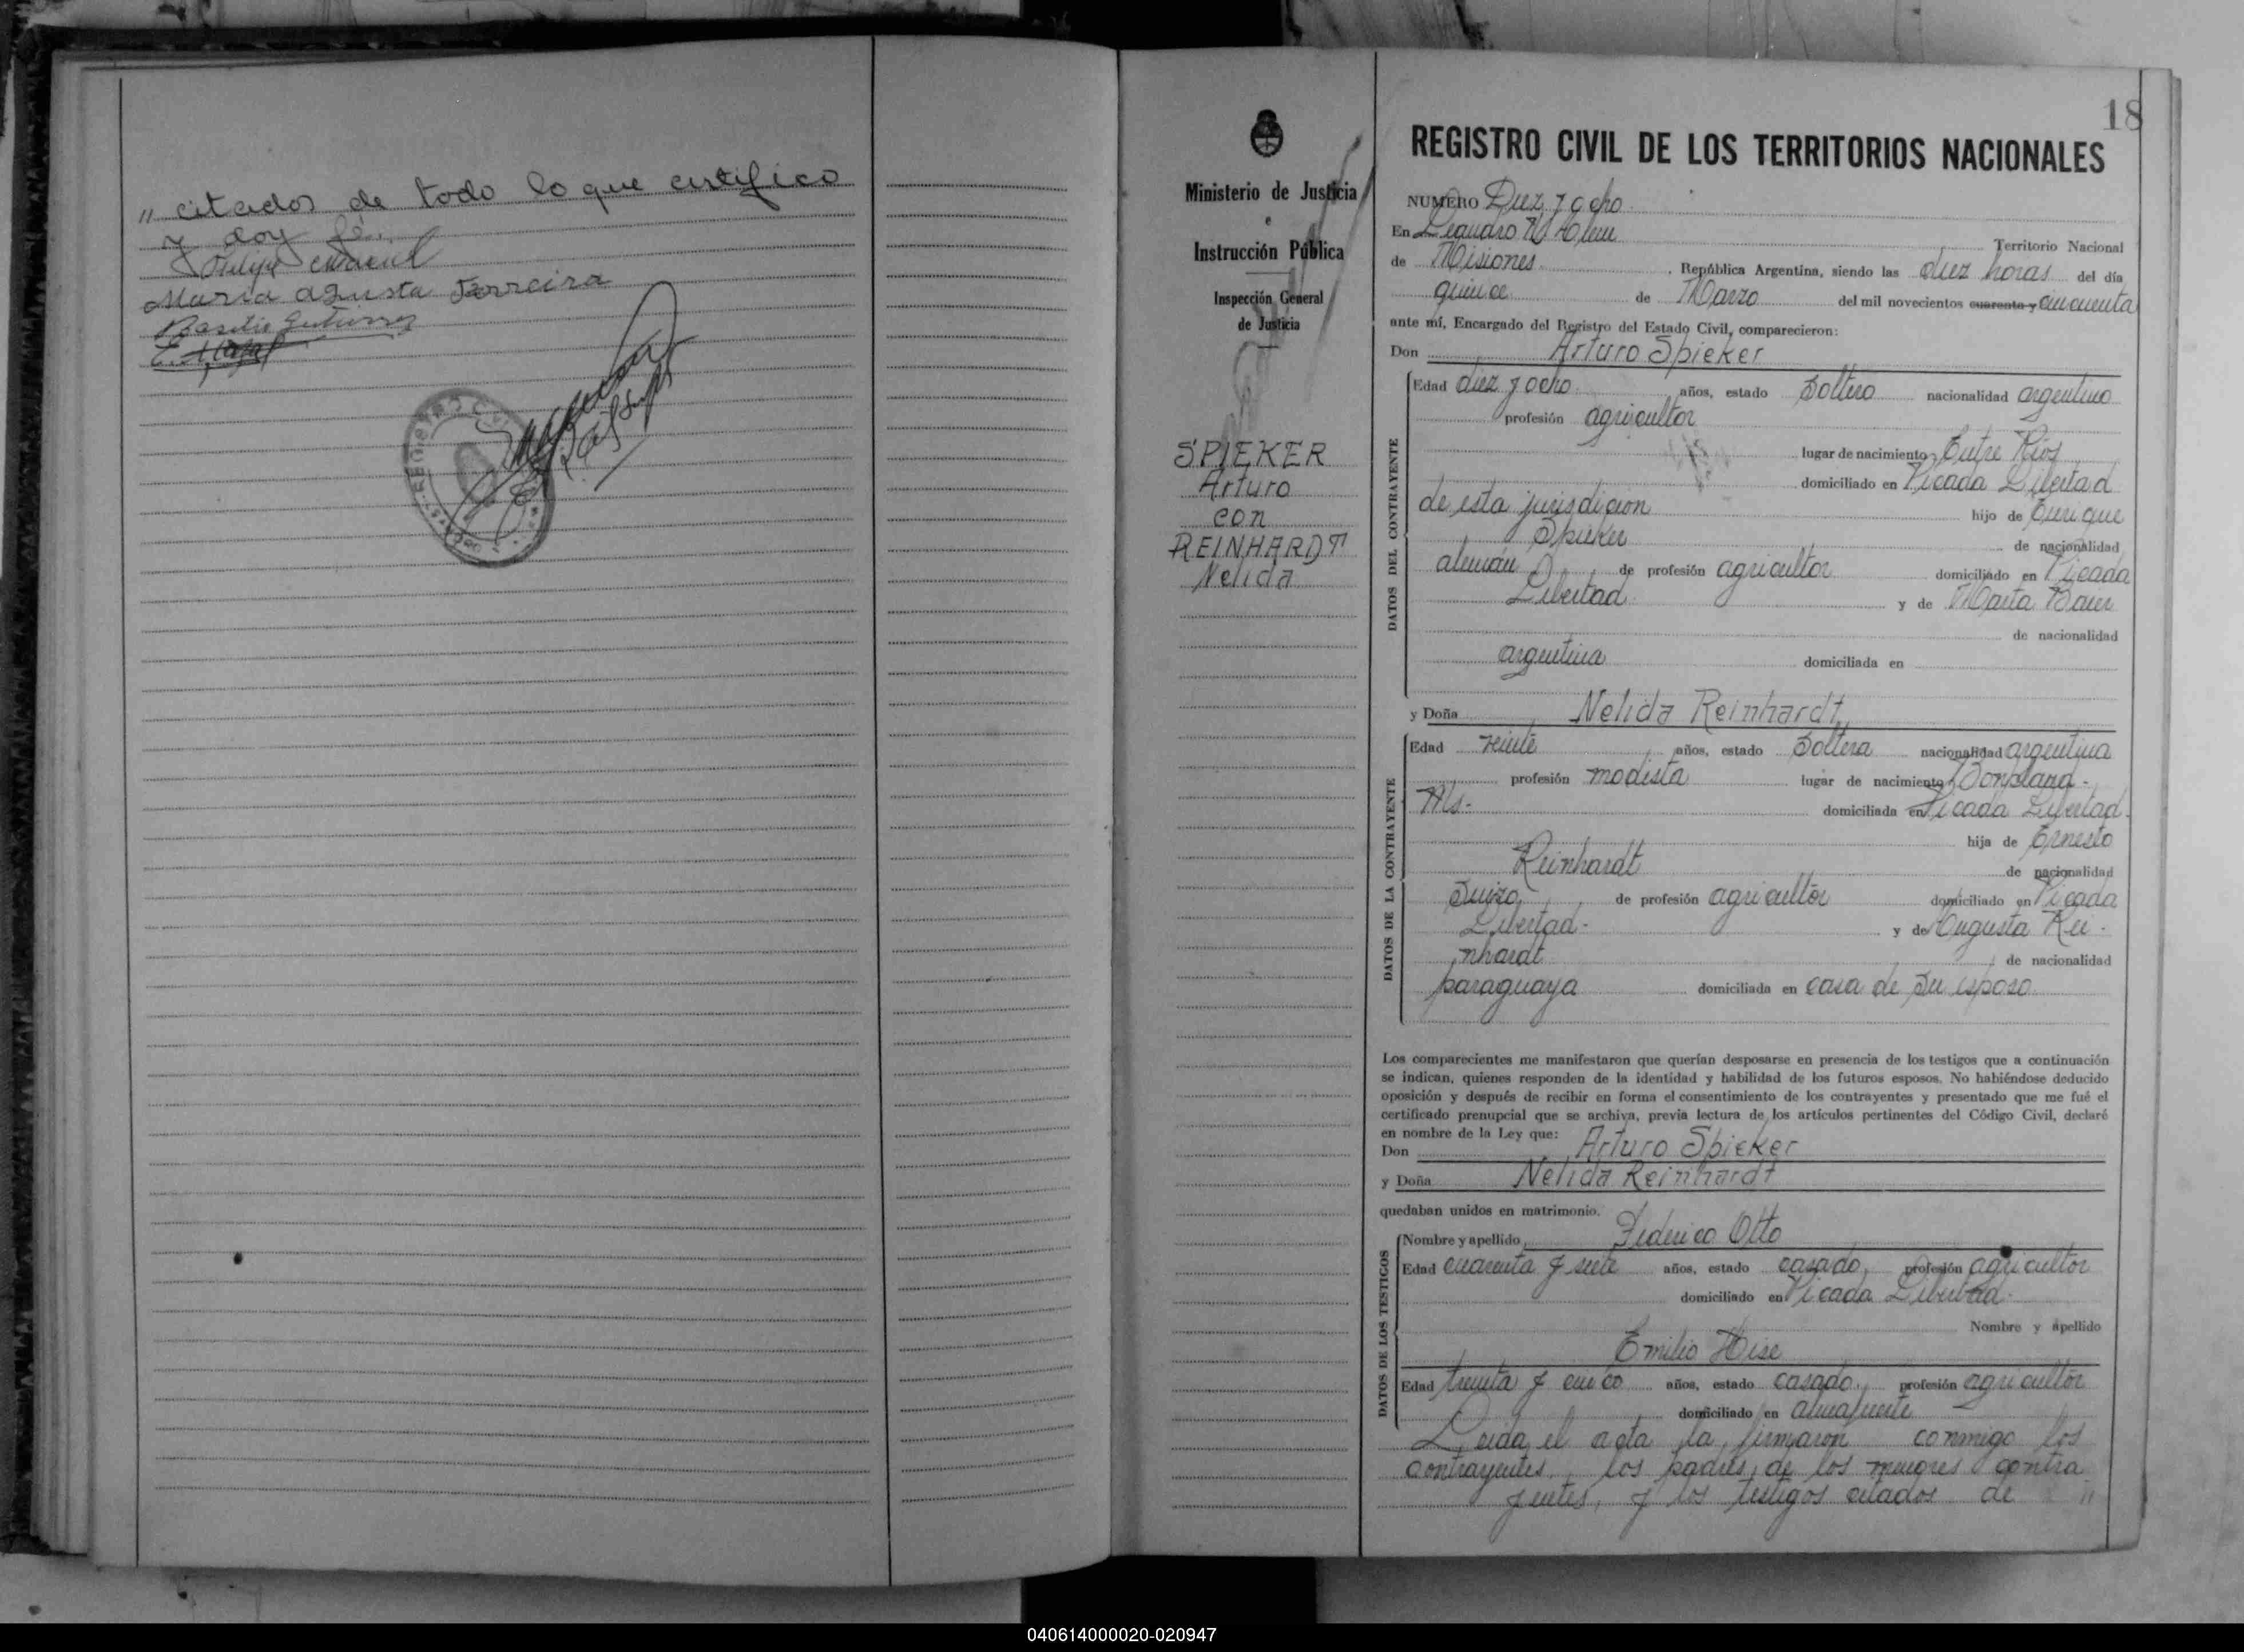 " citados de todo lo que certifico
y doy fé.
Maria Agusta Ferreira
Basilio Gutierrez
REGISTRO CIVIL
18
Ministerio de Justicia
e
Instrucción Pública
Inspección General
de Justicia
SPIEKER
Arturo
con
REINHARDT
Nelida
REGISTRO CIVIL DE LOS TERRITORIOS NACIONALES
NUMERO Diez y ocho
En Leandro N. Alem Territorio Nacional
de Misiones. República Argentina, siendo las diez horas del día
quince de Marzo del mil novecientos cuarenta y cincuenta
ante mí, Encargado del Registro del Estado Civil, comparecieron:
Don Arturo Spieker
DATOS DEL CONTRAYENTE
Edad diez y ocho años, estado soltero nacionalidad argentino
profesión agricultor
lugar de nacimiento Entre Rios
domiciliado en Picada Libertad
de esta jurisdicion hijo de Enrique
Spieker de nacionalidad
alemán de profesión agricultor domiciliado en Picada
Libertad y de Marta Bauer
de nacionalidad
argentina domiciliada en
y Doña Nelida Reinhardt
DATOS DE LA CONTRAYENTE
Edad veinte años, estado soltera nacionalidad argentina
profesión modista lugar de nacimiento Bonpland -
Ms.- domiciliada en Picada Libertad.
hija de Ernesto
Reinhardt de nacionalidad
Suizo de profesión agricultor domiciliado en Picada
Libertad - y de Augusta Rei-
nhardt de nacionalidad
paraguaya domiciliada en casa de su esposo
Los comparecientes me manifestaron que querían desposarse en presencia de los testigos que a continuación
se indican, quienes responden de la identidad y habilidad de los futuros esposos. No habiéndose deducido
oposición y después de recibir en forma el consentimiento de los contrayentes y presentado que me fué el
certificado prenupcial que se archiva, previa lectura de los artículos pertinentes del Código Civil, declaré
en nombre de la Ley que:
Don Arturo Spieker
y Doña Nelida Reinhardt
quedaban unidos en matrimonio.
DATOS DE LOS TESTIGOS
Nombre y apellido Federico Otto
Edad cuarenta y siete años, estado casado profesión agricultor
domiciliado en Picada Libertad.
Nombre y apellido
Emilio Hise
Edad treinta y cinco años, estado casado. profesión agricultor
domiciliado en almafuerte
Leida el acta la firmaron conmigo los
contrayentes, los padres de los menores contra
yentes, y los testigos citados de "
040614000020-020947